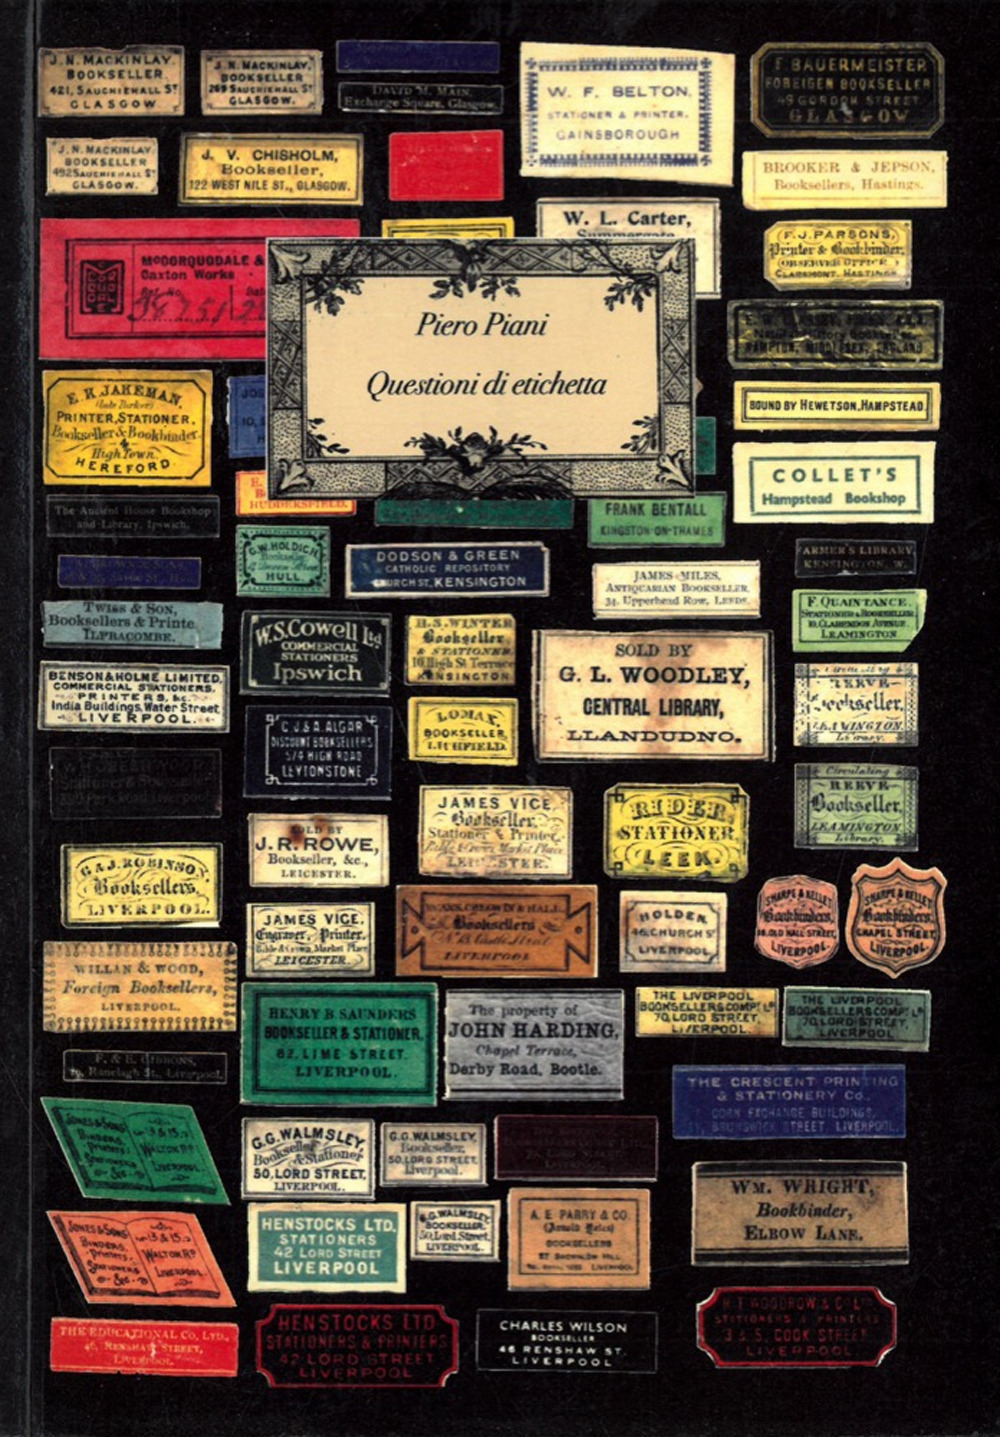 J. N. MACKINLAY,
BOOKSELLER
421, SAUCHIEHALL ST
GLASGOW
J. N. MACKINLAY,
BOOKSELLER
269 SAUCHIEHALL ST
GLASGOW.
DAVID M. MAIN,
Exchange Square, Glasgow.
W. F. BELTON.
STATIONER & PRINTER.
GAINSBOROUGH
F. BAUERMEISTER
FOREIGN BOOKSELLER
49 GORDON STREET
GLASGOW
J. N. MACKINLAY
BOOKSELLER
492 SAUCHIEHALL ST
GLASGOW.
J. V. CHISHOLM,
Bookseller,
122 WEST NILE ST., GLASGOW.
BROOKER & JEPSON,
Booksellers, Hastings.
W. L. Carter,
F. J. PARSONS,
Printer & Bookbinder,
OBSERVER OFFICE
CLAREMONT, HASTINGS
McCORQUODALE &
Caxton Works
Piero Piani
Questioni di etichetta
BOUND BY HEWETSON, HAMPSTEAD
E. K. JAKEMAN,
PRINTER, STATIONER,
Bookseller & Bookbinder
High Town,
HEREFORD
COLLET'S
Hampstead Bookshop
HUDDERSFIELD.
The Ancient House Bookshop
and Library, Ipswich.
FRANK BENTALL
KINGSTON-ON-THAMES
G. W. HOLDICH,
Bookseller
HULL.
DODSON & GREEN
CATHOLIC REPOSITORY
CHURCH ST. KENSINGTON
JAMES MILES,
ANTIQUARIAN BOOKSELLER,
34, Upperhead Row, LEEDS.
FARMER'S LIBRARY,
KENSINGTON, W.
TWISS & SON,
Booksellers & Printe
ILFRACOMBE.
F. QUAINTANCE,
STATIONER & BOOKSELLER
10, CLARENDON AVENUE
LEAMINGTON
W. S. Cowell Ltd
COMMERCIAL
STATIONERS
Ipswich
H. S. WINTER
Bookseller
& STATIONER.
10 High St Terrace
KENSINGTON
SOLD BY
G. L. WOODLEY,
CENTRAL LIBRARY,
LLANDUDNO.
BENSON & HOLME LIMITED,
COMMERCIAL STATIONERS,
PRINTERS, &c.
India Buildings, Water Street
LIVERPOOL.
REEVE
Bookseller,
LEAMINGTON
Library.
C. J. & A. ALGAR
DISCOUNT BOOKSELLERS
5/4 HIGH ROAD
LEYTONSTONE
LOMAX,
BOOKSELLER,
LICHFIELD.
Circulating
REEVE
Bookseller,
LEAMINGTON
Library.
JAMES VICE,
Bookseller,
Stationer & Printer,
Bible & Crown Market Place
LEICESTER.
RIDER,
STATIONER
LEEK.
SOLD BY
J. R. ROWE,
Bookseller, &c.,
LEICESTER.
G. & J. ROBINSON,
Booksellers,
LIVERPOOL.
JAMES VICE,
Engraver, Printer,
Bible & Crown Market Place
LEICESTER
Booksellers
LIVERPOOL
HOLDEN,
46, CHURCH ST
LIVERPOOL
SHARPE & KELLET
Bookbinders,
OLD HALL STREET,
LIVERPOOL
SHARPE & KELLET
Bookbinders,
CHAPEL STREET,
LIVERPOOL
WILLAN & WOOD,
Foreign Booksellers,
LIVERPOOL.
HENRY B. SAUNDERS
BOOKSELLER & STATIONER.
82. LIME STREET.
LIVERPOOL.
The property of
JOHN HARDING,
Chapel Terrace,
Derby Road, Bootle.
THE LIVERPOOL
BOOKSELLERS COMPY LD
70, LORD STREET,
LIVERPOOL
THE LIVERPOOL
BOOKSELLERS COMPY LD
70, LORD STREET,
LIVERPOOL
F. & E. GIBBONS,
19, Ranelagh St., Liverpool.
THE CRESCENT PRINTING
& STATIONERY Co.,
CORN EXCHANGE BUILDINGS,
BRUNSWICK STREET, LIVERPOOL
JONES & SONS
BINDERS,
Printers,
STATIONERS
&c
13 & 15
WALTON RD
LIVERPOOL
G. G. WALMSLEY
Bookseller & Stationer
50, LORD STREET,
LIVERPOOL.
G. G. WALMSLEY,
Bookseller,
50, LORD STREET,
Liverpool.
WM. WRIGHT,
Bookbinder,
ELBOW LANE.
JONES & SONS
BINDERS,
Printers,
STATIONERS
&c
13 & 15
WALTON RD
LIVERPOOL
HENSTOCKS LTD.
STATIONERS
42 LORD STREET
LIVERPOOL
G. G. WALMSLEY,
BOOKSELLER.
50, Lord Street,
LIVERPOOL.
A. E. PARRY & CO
BOOKSELLERS
LIVERPOOL
THE EDUCATIONAL CO, LTD.,
46, RENSHAW STREET,
LIVERPOOL.
HENSTOCKS LTD
STATIONERS & PRINTERS
42 LORD STREET
LIVERPOOL
CHARLES WILSON
BOOKSELLER
46 RENSHAW ST.
LIVERPOOL
STATIONERS & PRINTERS
3 & 5, COOK STREET
LIVERPOOL.